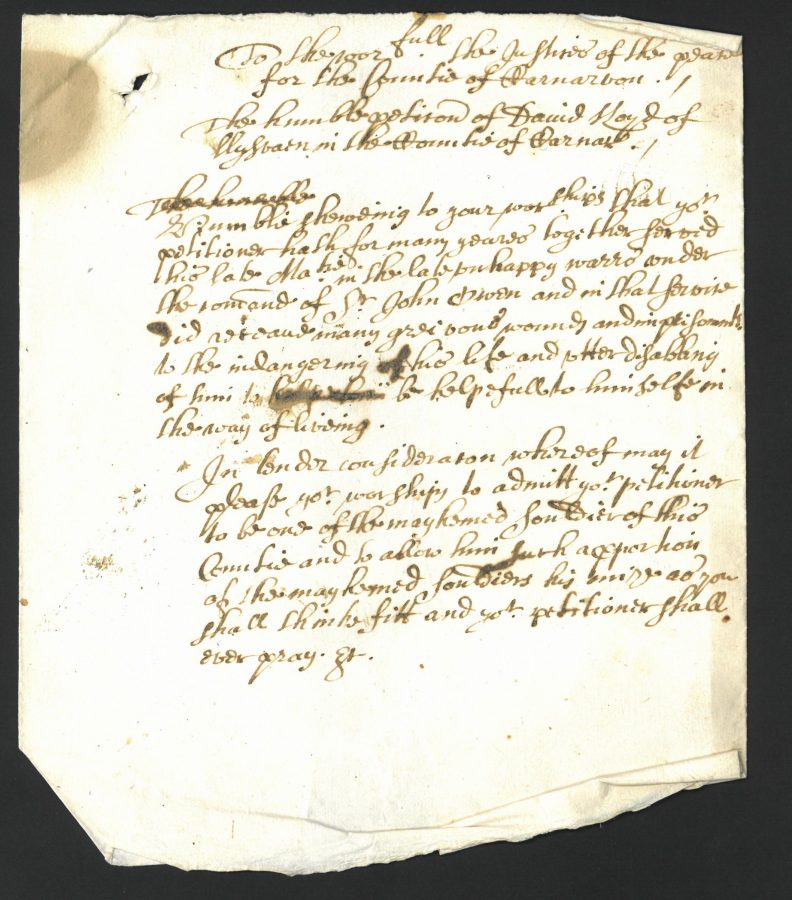 To the wor:full the Justices of the peace
for the Countie of Carnarvon.
The humble peticon of David lloyd of
llysvaen in the Countie of Carnarv.
The humble
Humblie sheweing to your worships that yor
petitioner hath for many yeares together served
his late Matie in the late unhappy warrs under
the comand of Sr John Owen and in that service
did receave many greivous wounds and imprisonmts
to the indangering of his life and utter disabling
of him to be helpefull to himselfe in
the way of liveing.
In tender consideracon whereof may it
please yor worships to admitt yor petitioner
to be one of the mayhemed souldiers of this
Countie and to allow him such a pportion
of the mayhemed souldiers his mize as you
shall thinke fitt and yor petitioner shall
ever pray. &c.